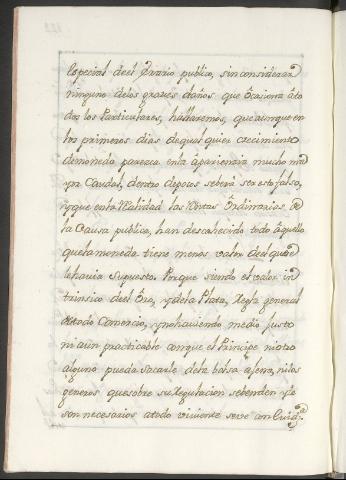 Especial de el Erario publico, sin considerar
ninguno de los graves daños que ôcasiona âto
dos los Particulares, hallaremos, que aunque en
los primeros dias de qualquier crecimiento
de moneda parezca en la apariencia mucho ma
yor Caudal, dentro de pocos se berá ser esto falso,
y que en la Realidad las Rentas Ôrdinarias de
la Causa publica, han descahecido todo âquello
que la moneda tiene menos valor de el que se
le havia supuesto. Porque siendo el valor in
trinsico de el Ôro, y de la Plata, Regla general
de todo Comercio, y no haviendo medio justo
ni aun practicable con que el Principe ni otro
alguno pueda sacarle de la bolsa agena, ni los
generos que sobre su Regulacion se benden, y se
son necesarios a todo viviente se ve con Evid.ª